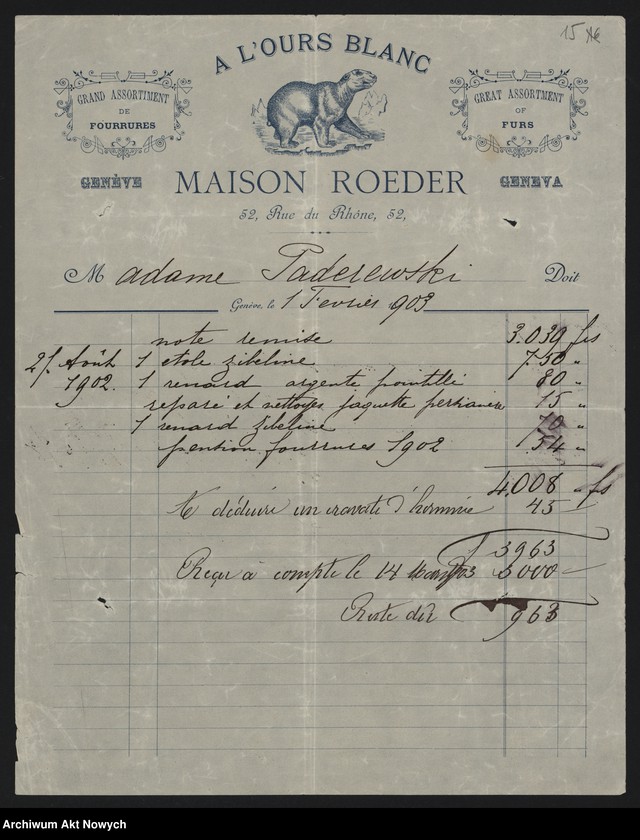 15
A L'OURS BLANC
GRAND ASSORTIMENT
DE
FOURRURES
GREAT ASSORTMENT
OF
FURS
GENÈVE
MAISON ROEDER
GENEVA
52, Rue du Rhône, 52,
Madame Paderewski Doit
Genève, le 1 Fevrier 903
note remise 3.039 frs
21. Août 1 etole zibeline 750 "
1902. 1 renard argente pointillé 80 "
reparé et nettoyes jaquette persianer 15 "
1 renard zibeline 70 "
pention fourrures 1902 54 "
4,008 " frs
A déduire un cravate d'hermine 45
3963
Reçu à compte le 14 Mars 903 3000
Reste dû 963
Archiwum Akt Nowych